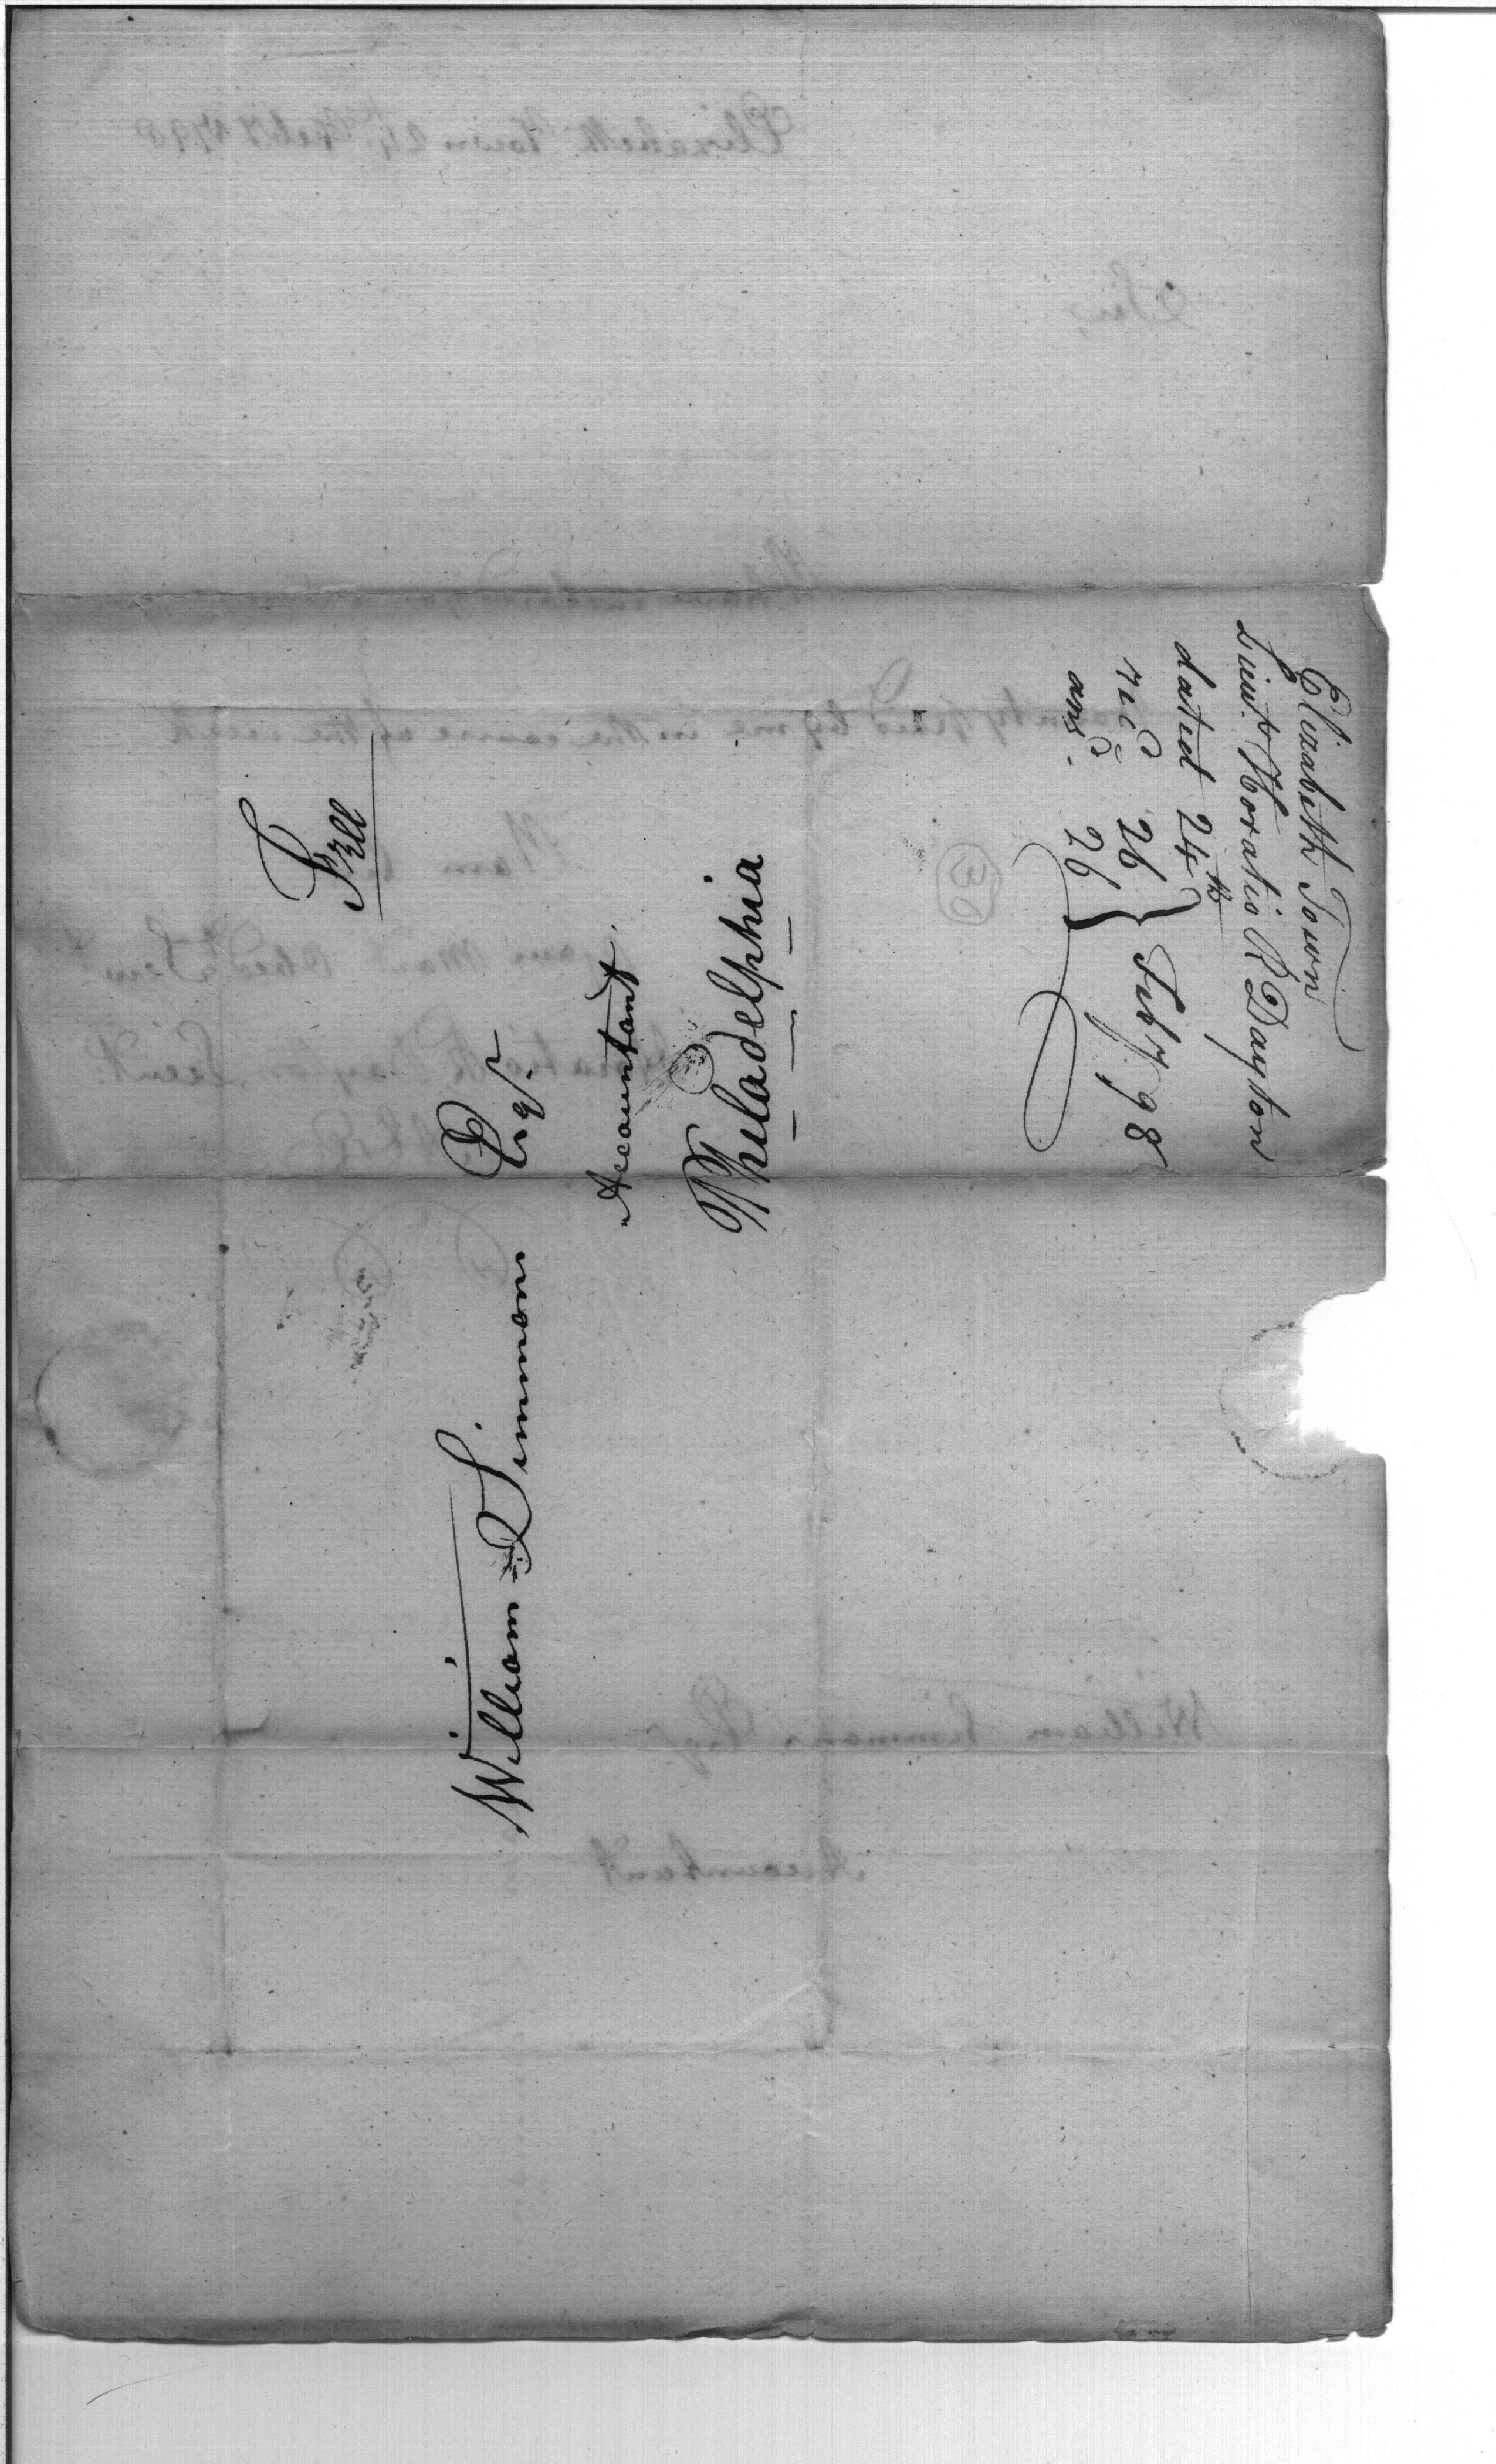 Elizabeth Town
Lieut. Horatio R Dayton
dated 24th
recd 26 } Feby 98
ansd. 26
Free
William Simmons Esqr.
Accountant
Philadelphia
Elizabeth Town 24 Feby 1798
Sir,
paid by me in the course of the week
I am
your Mot Obed Servt
Horatio R Dayton Lieut.
William Simmons Esqr
Accountant